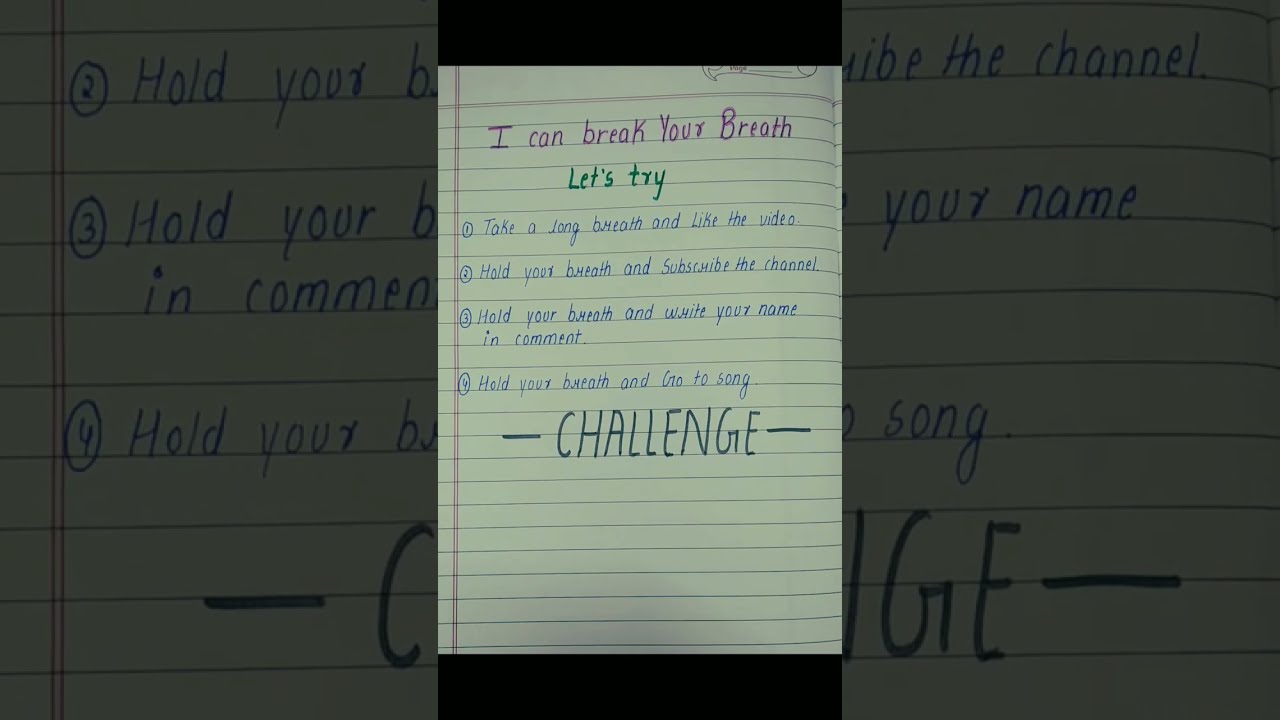 Page
I can break Your Breath
Let's try
① Take a long breath and Like the video.
② Hold your breath and Subscribe the channel.
③ Hold your breath and write your name
in comment.
④ Hold your breath and Go to song.
— CHALLENGE —